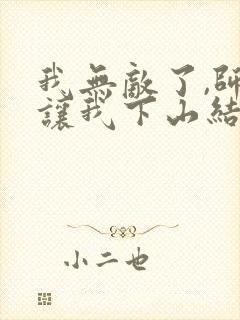 我無敵了,師
讓我下山結
小二也